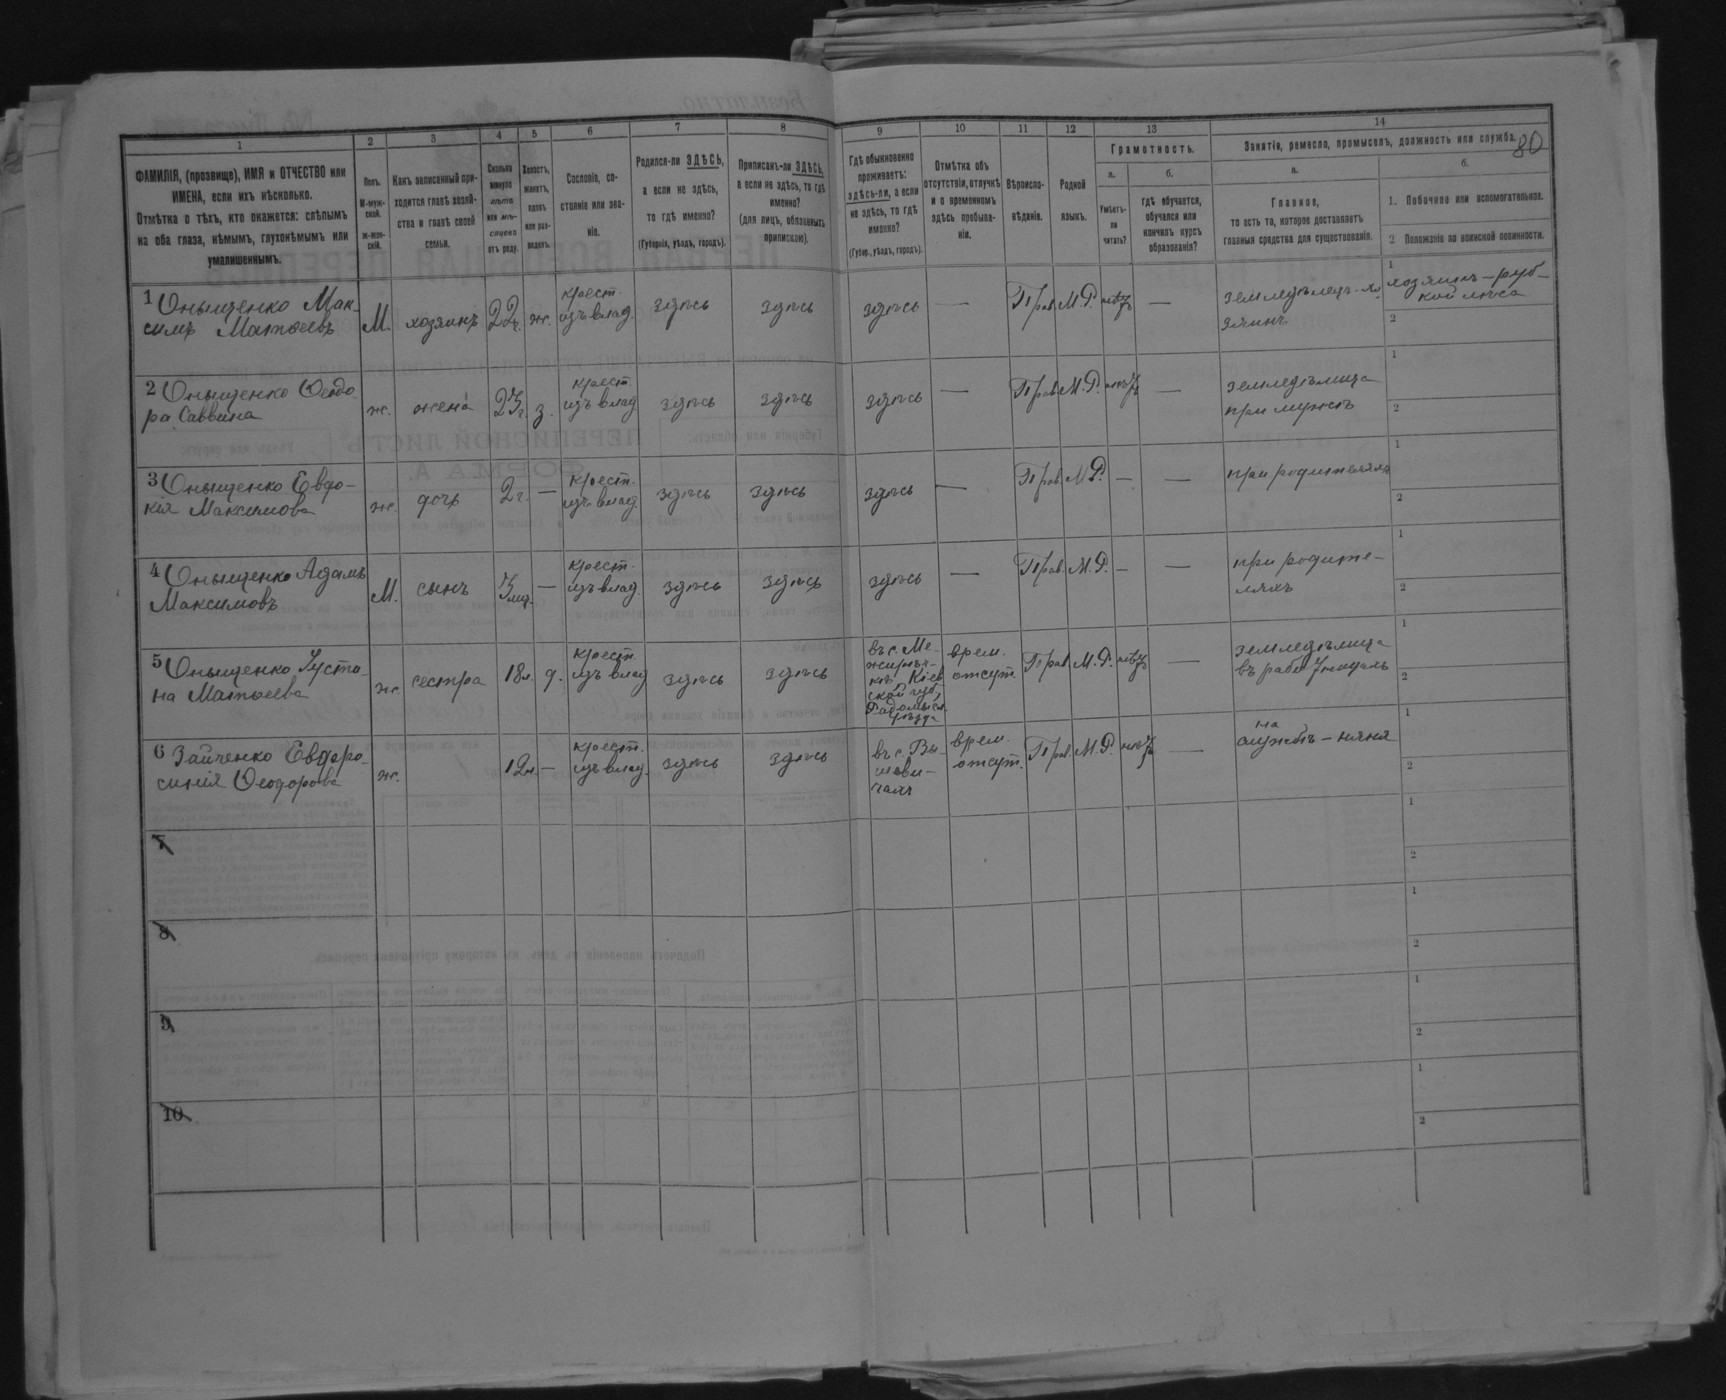 80
1
2
3
4
5
6
7
8
9
10
11
12
13
14
ФАМИЛІЯ, (прозвище), ИМЯ и ОТЧЕСТВО или
ИМЕНА, если ихъ нѣсколько.
Отмѣтка о тѣхъ, кто окажется: слѣпымъ
на оба глаза, нѣмымъ, глухонѣмымъ или
умалишеннымъ.
Полъ.
М-муж-
ской.
Ж-жен-
скій.
Какъ записанный при-
ходится главѣ хозяй-
ства и главѣ своей
семьи.
Сколько
минуло
лѣтъ
или мѣ-
сяцевъ
отъ роду.
Холостъ,
женатъ,
вдовъ
или раз-
веденъ.
Сословіе, со-
стояніе или зва-
ніе.
Родился-ли ЗДѢСЬ,
а если не здѣсь,
то гдѣ именно?
(Губернія, уѣздъ, городъ).
Приписанъ-ли ЗДѢСЬ,
а если не здѣсь, то гдѣ
именно?
(для лицъ, обязанныхъ
припискою).
Гдѣ обыкновенно
проживаетъ:
здѣсь-ли, а если
не здѣсь, то гдѣ
именно?
(Губер., уѣздъ, городъ).
Отмѣтка объ
отсутствіи, отлучкѣ
и о временномъ
здѣсь пребыва-
ніи.
Вѣроиспо-
вѣданіе.
Родной
языкъ.
Грамотность.
а.
Умѣетъ-
ли
читать?
б.
гдѣ обучается,
обучался или
кончилъ курсъ
образованія?
Занятіе, ремесло, промыселъ, должность или служба.
а.
Главное,
то есть то, которое доставляетъ
главныя средства для существованія.
б.
1. Побочное или вспомогательное.
2 Положеніе по воинской повинности.
1 Онищенко Мак-
симъ Матѳеевъ
М. хозяинъ 22г. ж.
крест.
изъ влад.
здѣсь здѣсь здѣсь — Прав. М.Р. нѣтъ —
земледѣлецъ-хо
зяинъ
1 хозяинъ - руб-
кой лѣса
2
2 Онищенко Ѳеодо-
ра Саввина
ж. жена з.
крест.
изъ влад
здѣсь здѣсь здѣсь — Прав. М.Р. нѣтъ —
земледѣлица
при мужѣ
1
2
3 Онищенко Евдо-
кія Максимова
ж. дочь 2г. —
крест.
изъ влад.
здѣсь здѣсь здѣсь — Прав. М.Р. — —
при родителяхъ
1
2
4 Онищенко Адамъ
Максимовъ
М. сынъ —
крест.
изъ влад.
здѣсь здѣсь здѣсь — Прав. М.Р. — —
при родите-
ляхъ
1
2
5 Онищенко Густи-
на Матѳеева
ж. сестра 18л. д.
крест.
изъ влад
здѣсь здѣсь
въ с. Ме-
жирич-
кѣ Кіев
ской губ.
Радомысл.
уѣзда
врем.
отсут.
Прав. М.Р. нѣтъ —
земледѣлица
1
2
6 Зайченко Евфро-
синія Ѳеодорова
ж. 12л. —
крест.
изъ влад.
здѣсь здѣсь
въ с. Вы-
шеви-
чахъ
врем.
отсут.
Прав. М.Р. нѣтъ —
на
службѣ - няня
1
2
7
1
2
8
1
2
9
1
2
10
1
2